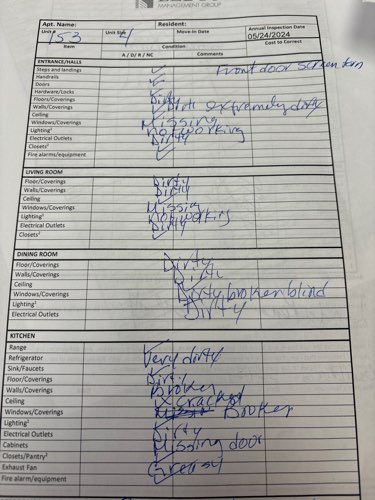 MANAGEMENT GROUP
Apt. Name: Resident:
Unit # 153 Unit Size 4 Move-In Date Annual Inspection Date 05/24/2024
Item Condition Cost to Correct
A / D / R / NC Comments
ENTRANCE/HALLS
Steps and landings ✓ Front door screen torn
Handrails ✓
Doors ✓
Hardware/Locks ✓
Floors/Coverings Dirty
Walls/Coverings Dirty extremely dirty
Ceiling ✓
Windows/Coverings Missing
Lighting¹ not working
Electrical Outlets Dirty
Closets² ✓
Fire alarms/equipment
LIVING ROOM
Floor/Coverings Dirty
Walls/Coverings Dirty
Ceiling ✓
Windows/Coverings Missing
Lighting¹ not working
Electrical Outlets Dirty
Closets² ✓
DINING ROOM
Floor/Coverings Dirty
Walls/Coverings Dirty
Ceiling ✓
Windows/Coverings Dirty broken blind
Lighting¹ Dirty
Electrical Outlets ✓
KITCHEN
Range ✓
Refrigerator Very dirty
Sink/Faucets ✓
Floor/Coverings Dirty
Walls/Coverings Broken
Ceiling Cracked
Windows/Coverings Broken
Lighting¹ ✓
Electrical Outlets Dirty
Cabinets Missing door
Closets/Pantry² ✓
Exhaust Fan Greasy
Fire alarm/equipment ✓